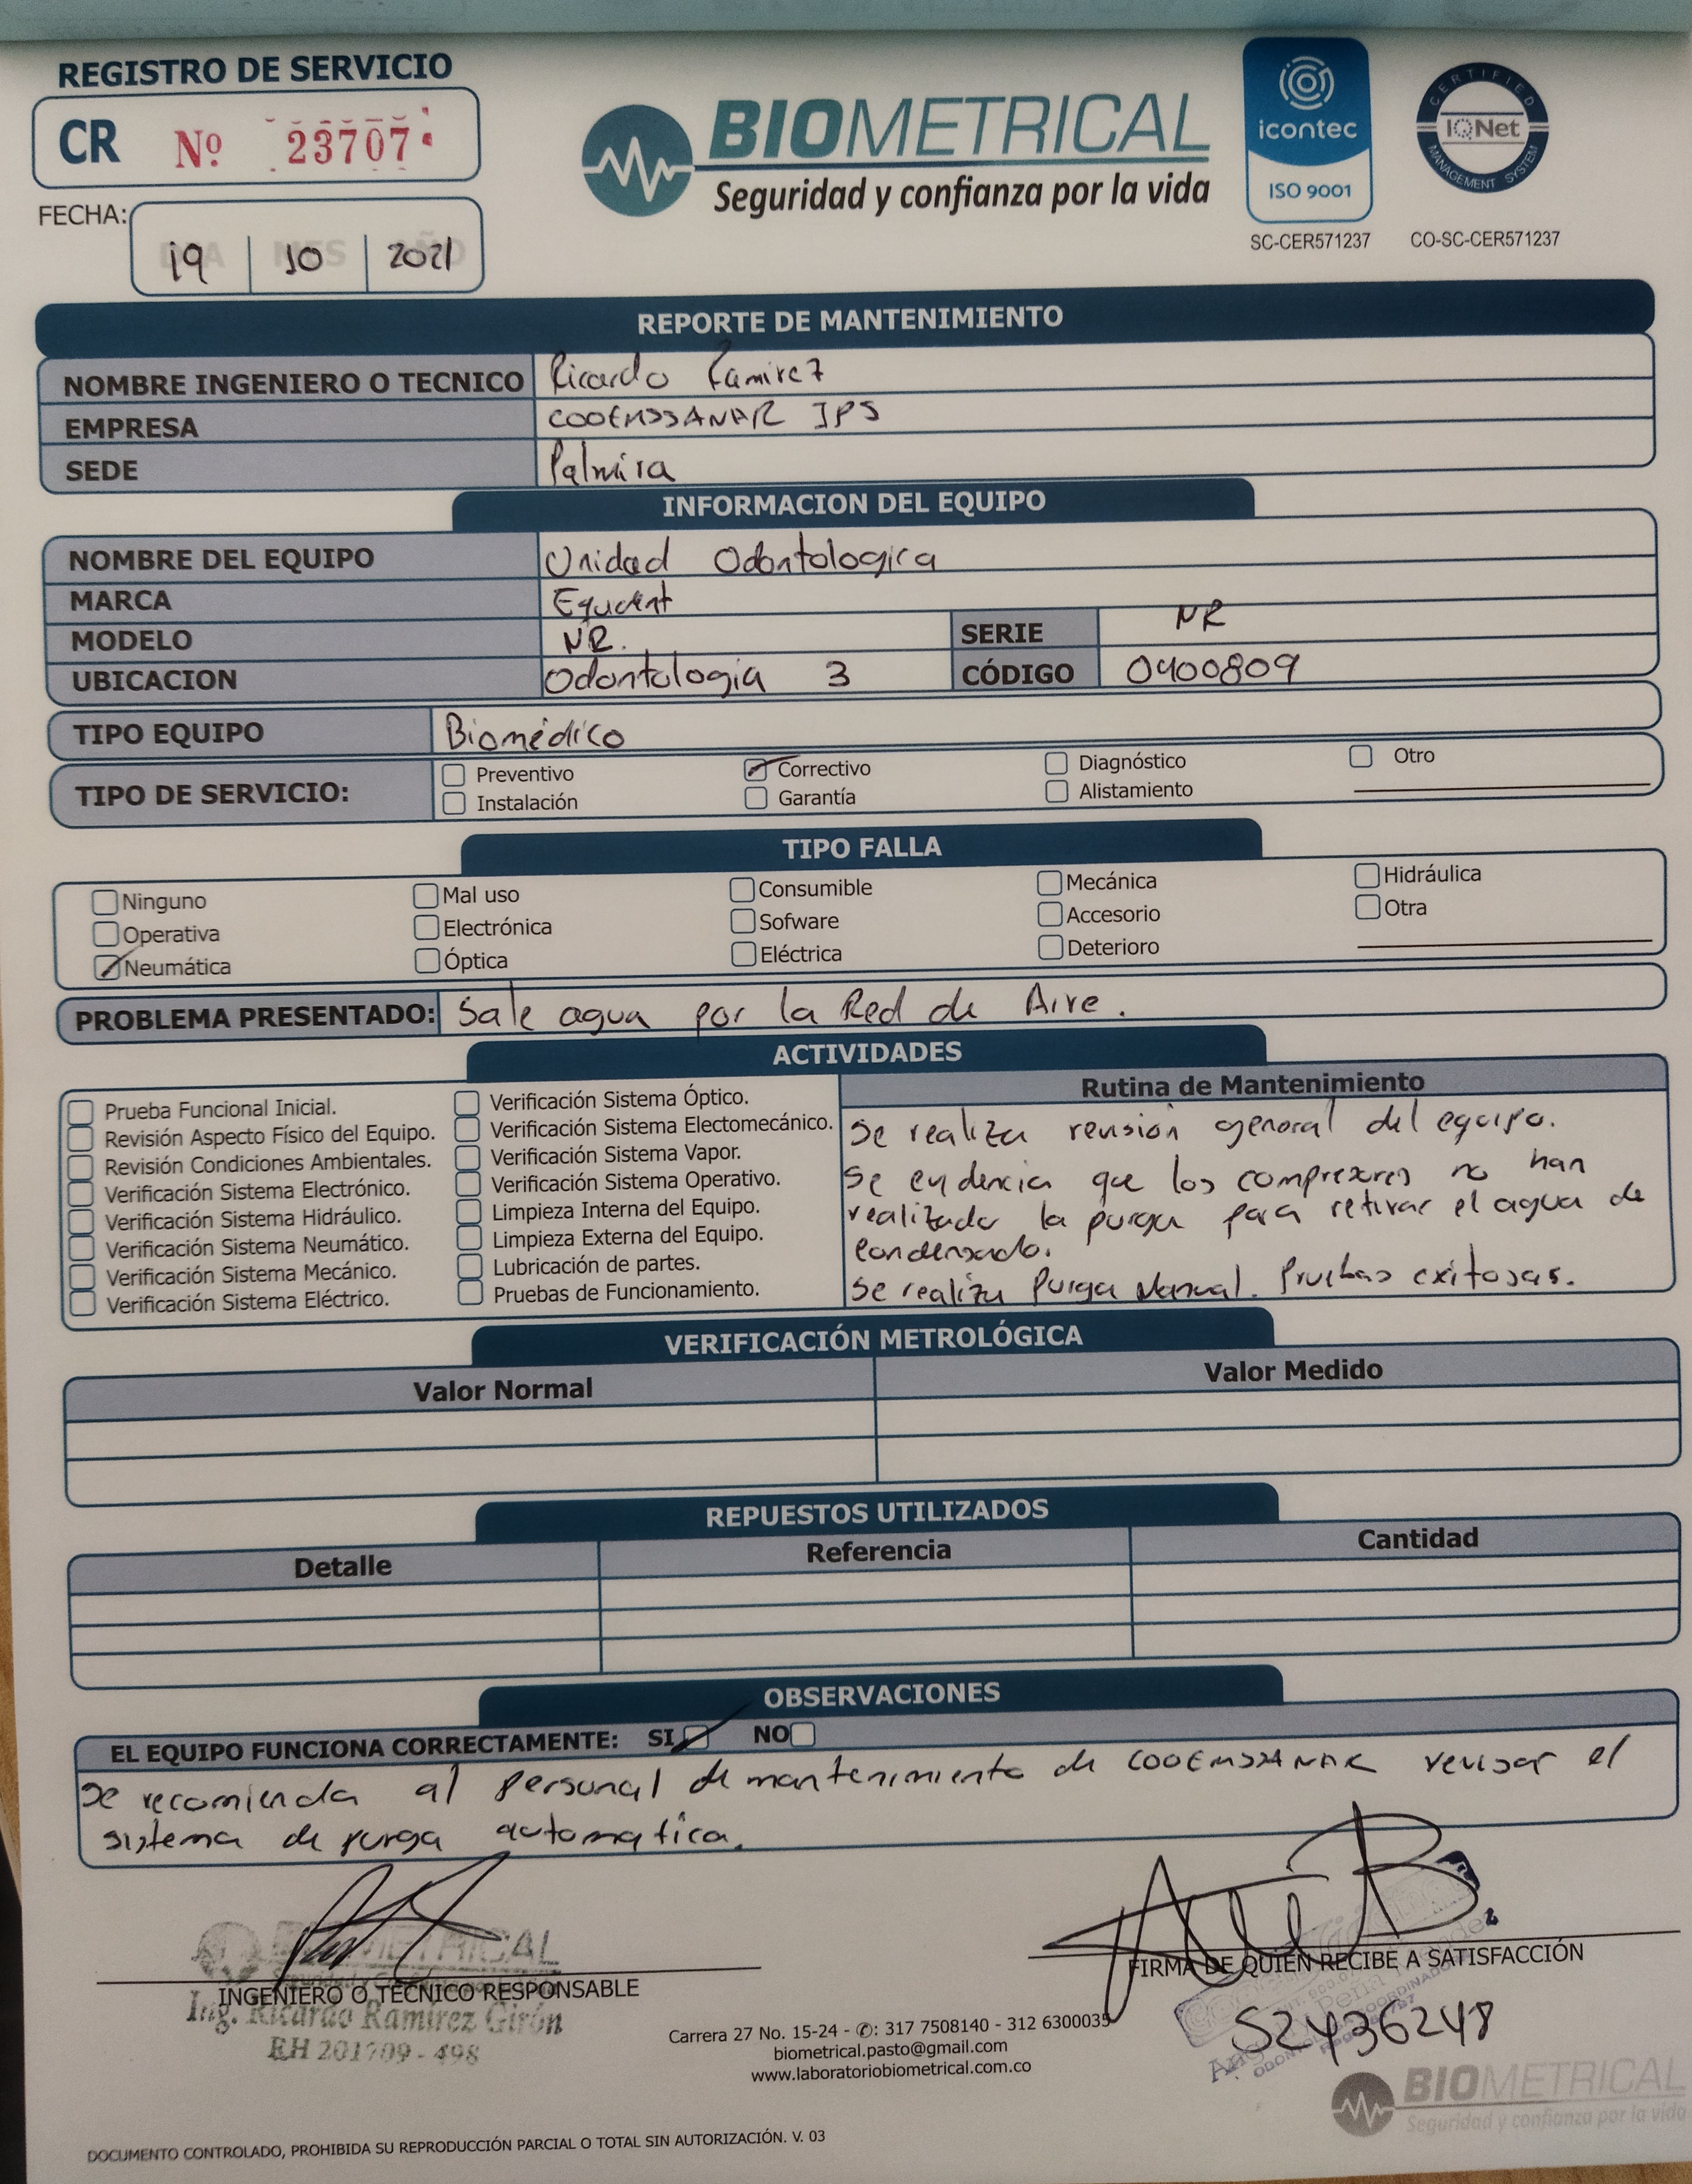 REGISTRO DE SERVICIO
CR Nº 23707
BIOMETRICAL
Seguridad y confianza por la vida
icontec
ISO 9001
SC-CER571237
CERTIFIED
IQNet
MANAGEMENT SYSTEM
CO-SC-CER571237
FECHA:
19 10 2021
REPORTE DE MANTENIMIENTO
NOMBRE INGENIERO O TECNICO Ricardo Ramirez
EMPRESA COOEMSSANAR IPS
SEDE Palmira
INFORMACION DEL EQUIPO
NOMBRE DEL EQUIPO Unidad Odontologica
MARCA Equdent
MODELO NR. SERIE NR
UBICACION Odontologia 3 CÓDIGO 0400809
TIPO EQUIPO Biomédico
TIPO DE SERVICIO:
Preventivo Correctivo Diagnóstico Otro
Instalación Garantía Alistamiento
TIPO FALLA
Ninguno Mal uso Consumible Mecánica Hidráulica
Operativa Electrónica Sofware Accesorio Otra
Neumática Óptica Eléctrica Deterioro
PROBLEMA PRESENTADO: Sale agua por la Red de Aire.
ACTIVIDADES
Prueba Funcional Inicial.
Revisión Aspecto Físico del Equipo.
Revisión Condiciones Ambientales.
Verificación Sistema Electrónico.
Verificación Sistema Hidráulico.
Verificación Sistema Neumático.
Verificación Sistema Mecánico.
Verificación Sistema Eléctrico.
Verificación Sistema Óptico.
Verificación Sistema Electomecánico.
Verificación Sistema Vapor.
Verificación Sistema Operativo.
Limpieza Interna del Equipo.
Limpieza Externa del Equipo.
Lubricación de partes.
Pruebas de Funcionamiento.
Rutina de Mantenimiento
Se realiza revisión general del equipo.
Se evidencia que los compresores no han
realizado la purga para retirar el agua de
condensado.
Se realiza Purga Manual. Pruebas exitosas.
VERIFICACIÓN METROLÓGICA
Valor Normal Valor Medido
REPUESTOS UTILIZADOS
Detalle Referencia Cantidad
OBSERVACIONES
EL EQUIPO FUNCIONA CORRECTAMENTE: SI NO
Se recomienda al personal de mantenimiento de COOEMSSANAR revisar el
sistema de purga automatica.
BIOMETRICAL
INGENIERO O TÉCNICO RESPONSABLE
Ing. Ricardo Ramírez Girón
RH 201709 - 498
FIRMA DE QUIEN RECIBE A SATISFACCIÓN
52436248
Carrera 27 No. 15-24 - ✆: 317 7508140 - 312 6300035
biometrical.pasto@gmail.com
www.laboratoriobiometrical.com.co
BIOMETRICAL
Seguridad y confianza por la vida
DOCUMENTO CONTROLADO, PROHIBIDA SU REPRODUCCIÓN PARCIAL O TOTAL SIN AUTORIZACIÓN. V. 03